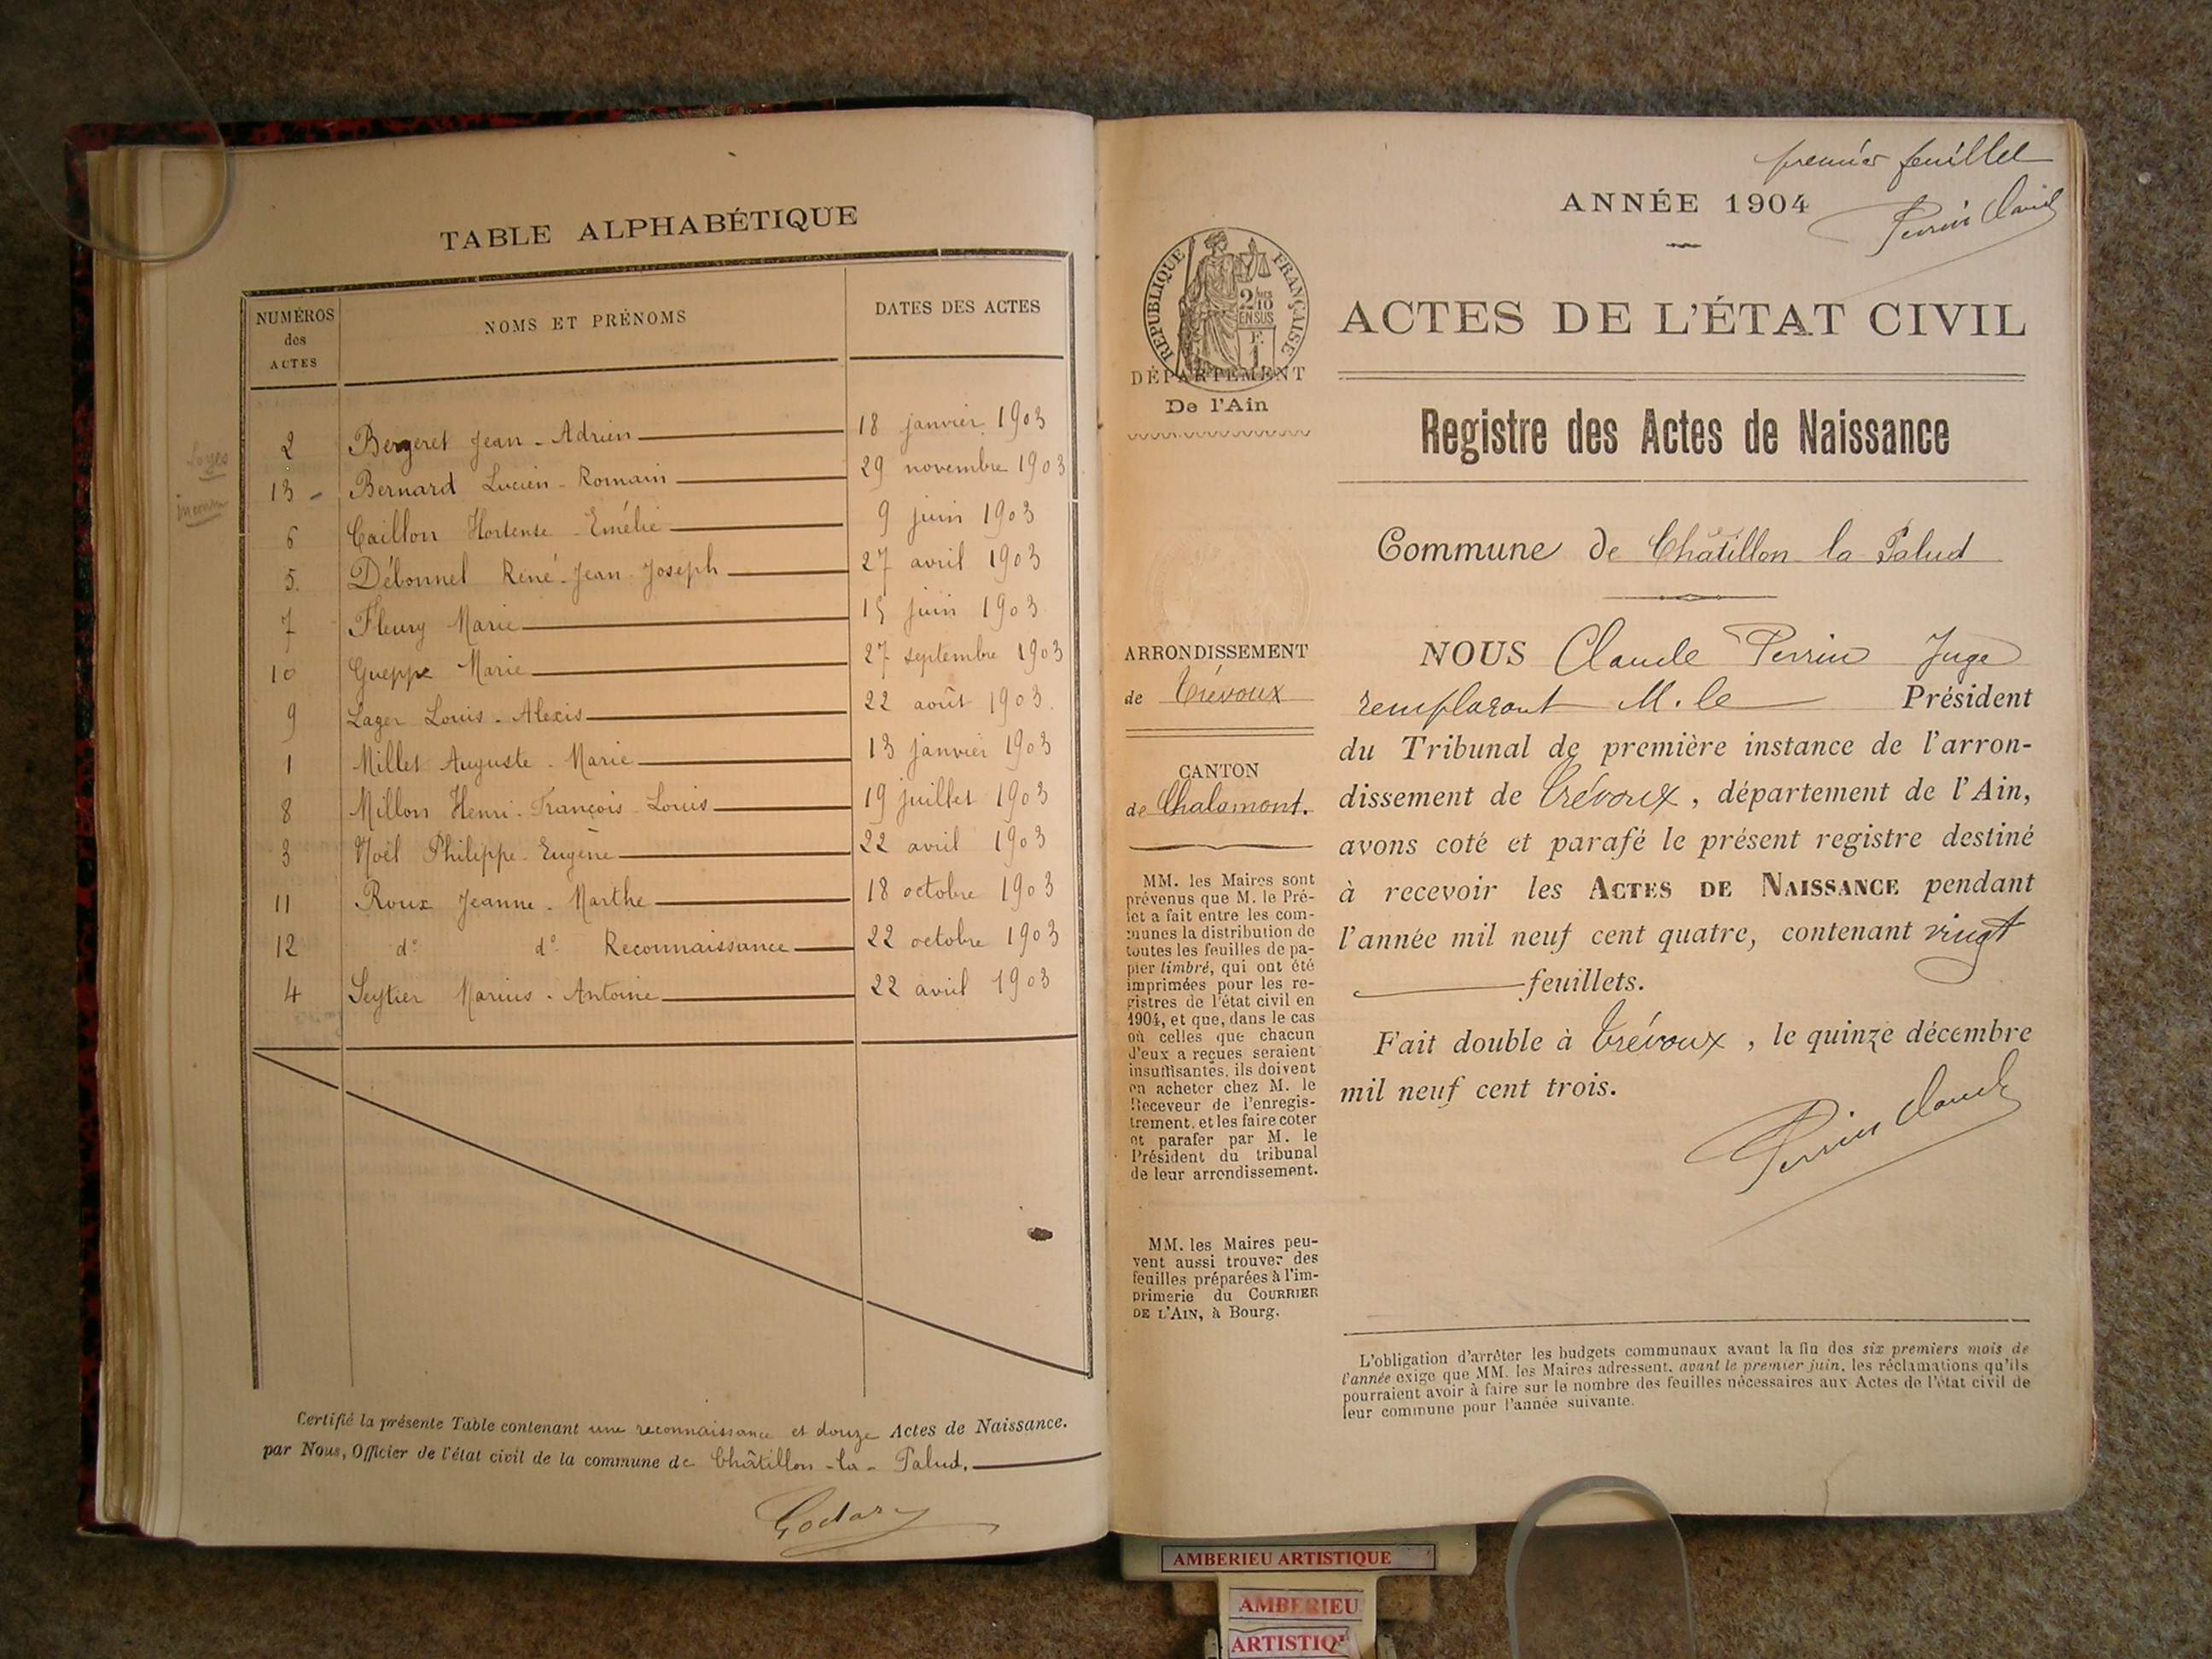 TABLE ALPHABÉTIQUE
NUMÉROS des ACTES
NOMS ET PRÉNOMS
DATES DES ACTES
2 Bergeret Jean - Adrien 18 janvier 1903
13 - Bernard Lucien - Romain 29 novembre 1903
6 Caillon Hortense - Emélie 9 juin 1903
5. Débonnel René - Jean - Joseph 27 avril 1903
7 Fleury Marie 15 juin 1903
10 Gueppe Marie 27 septembre 1903
9 Lager Louis - Alexis 22 août 1903.
1 Millet Auguste - Marie 13 janvier 1903
8 Millon Henri - François - Louis 19 juillet 1903
3 Noël Philippe - Eugène 22 avril 1903
11 Roux Jeanne - Marthe 18 octobre 1903
12 d° d° Reconnaissance 22 octobre 1903
4 Seytier Marius - Antoine 22 avril 1903
Certifié la présente Table contenant une reconnaissance et douze Actes de Naissance.
par Nous, Officier de l'état civil de la commune de Châtillon - la - Palud.
Godard
premier feuillet
ANNÉE 1904
Perrin Claude
RÉPUBLIQUE FRANÇAISE
2/10
EN SUS
F.
1
ACTES DE L'ÉTAT CIVIL
DÉPARTEMENT
De l'Ain
Registre des Actes de Naissance
Commune de Châtillon la Palud
ARRONDISSEMENT
de Trévoux
CANTON
de Chalamont.
MM. les Maires sont
prévenus que M. le Pré-
fet a fait entre les com-
munes la distribution de
toutes les feuilles de pa-
pier timbré, qui ont été
imprimées pour les re-
gistres de l'état civil en
1904, et que, dans le cas
où celles que chacun
d'eux a reçues seraient
insuffisantes, ils doivent
en acheter chez M. le
Receveur de l'enregis-
trement, et les faire coter
et parafer par M. le
Président du tribunal
de leur arrondissement.
MM. les Maires peu-
vent aussi trouver des
feuilles préparées à l'im-
primerie du COURRIER
DE L'AIN, à Bourg.
NOUS Claude Perrin Juge
remplaçant M. le Président
du Tribunal de première instance de l'arron-
dissement de Trévoux, département de l'Ain,
avons coté et parafé le présent registre destiné
à recevoir les ACTES DE NAISSANCE pendant
l'année mil neuf cent quatre, contenant vingt
feuillets.
Fait double à Trévoux, le quinze décembre
mil neuf cent trois.
Perrin Claude
L'obligation d'arrêter les budgets communaux avant la fin des six premiers mois de
l'année exige que MM. les Maires adressent, avant le premier juin, les réclamations qu'ils
pourraient avoir à faire sur le nombre des feuilles nécessaires aux Actes de l'état civil de
leur commune pour l'année suivante.
AMBERIEU ARTISTIQUE
AMBERIEU
ARTISTIQ